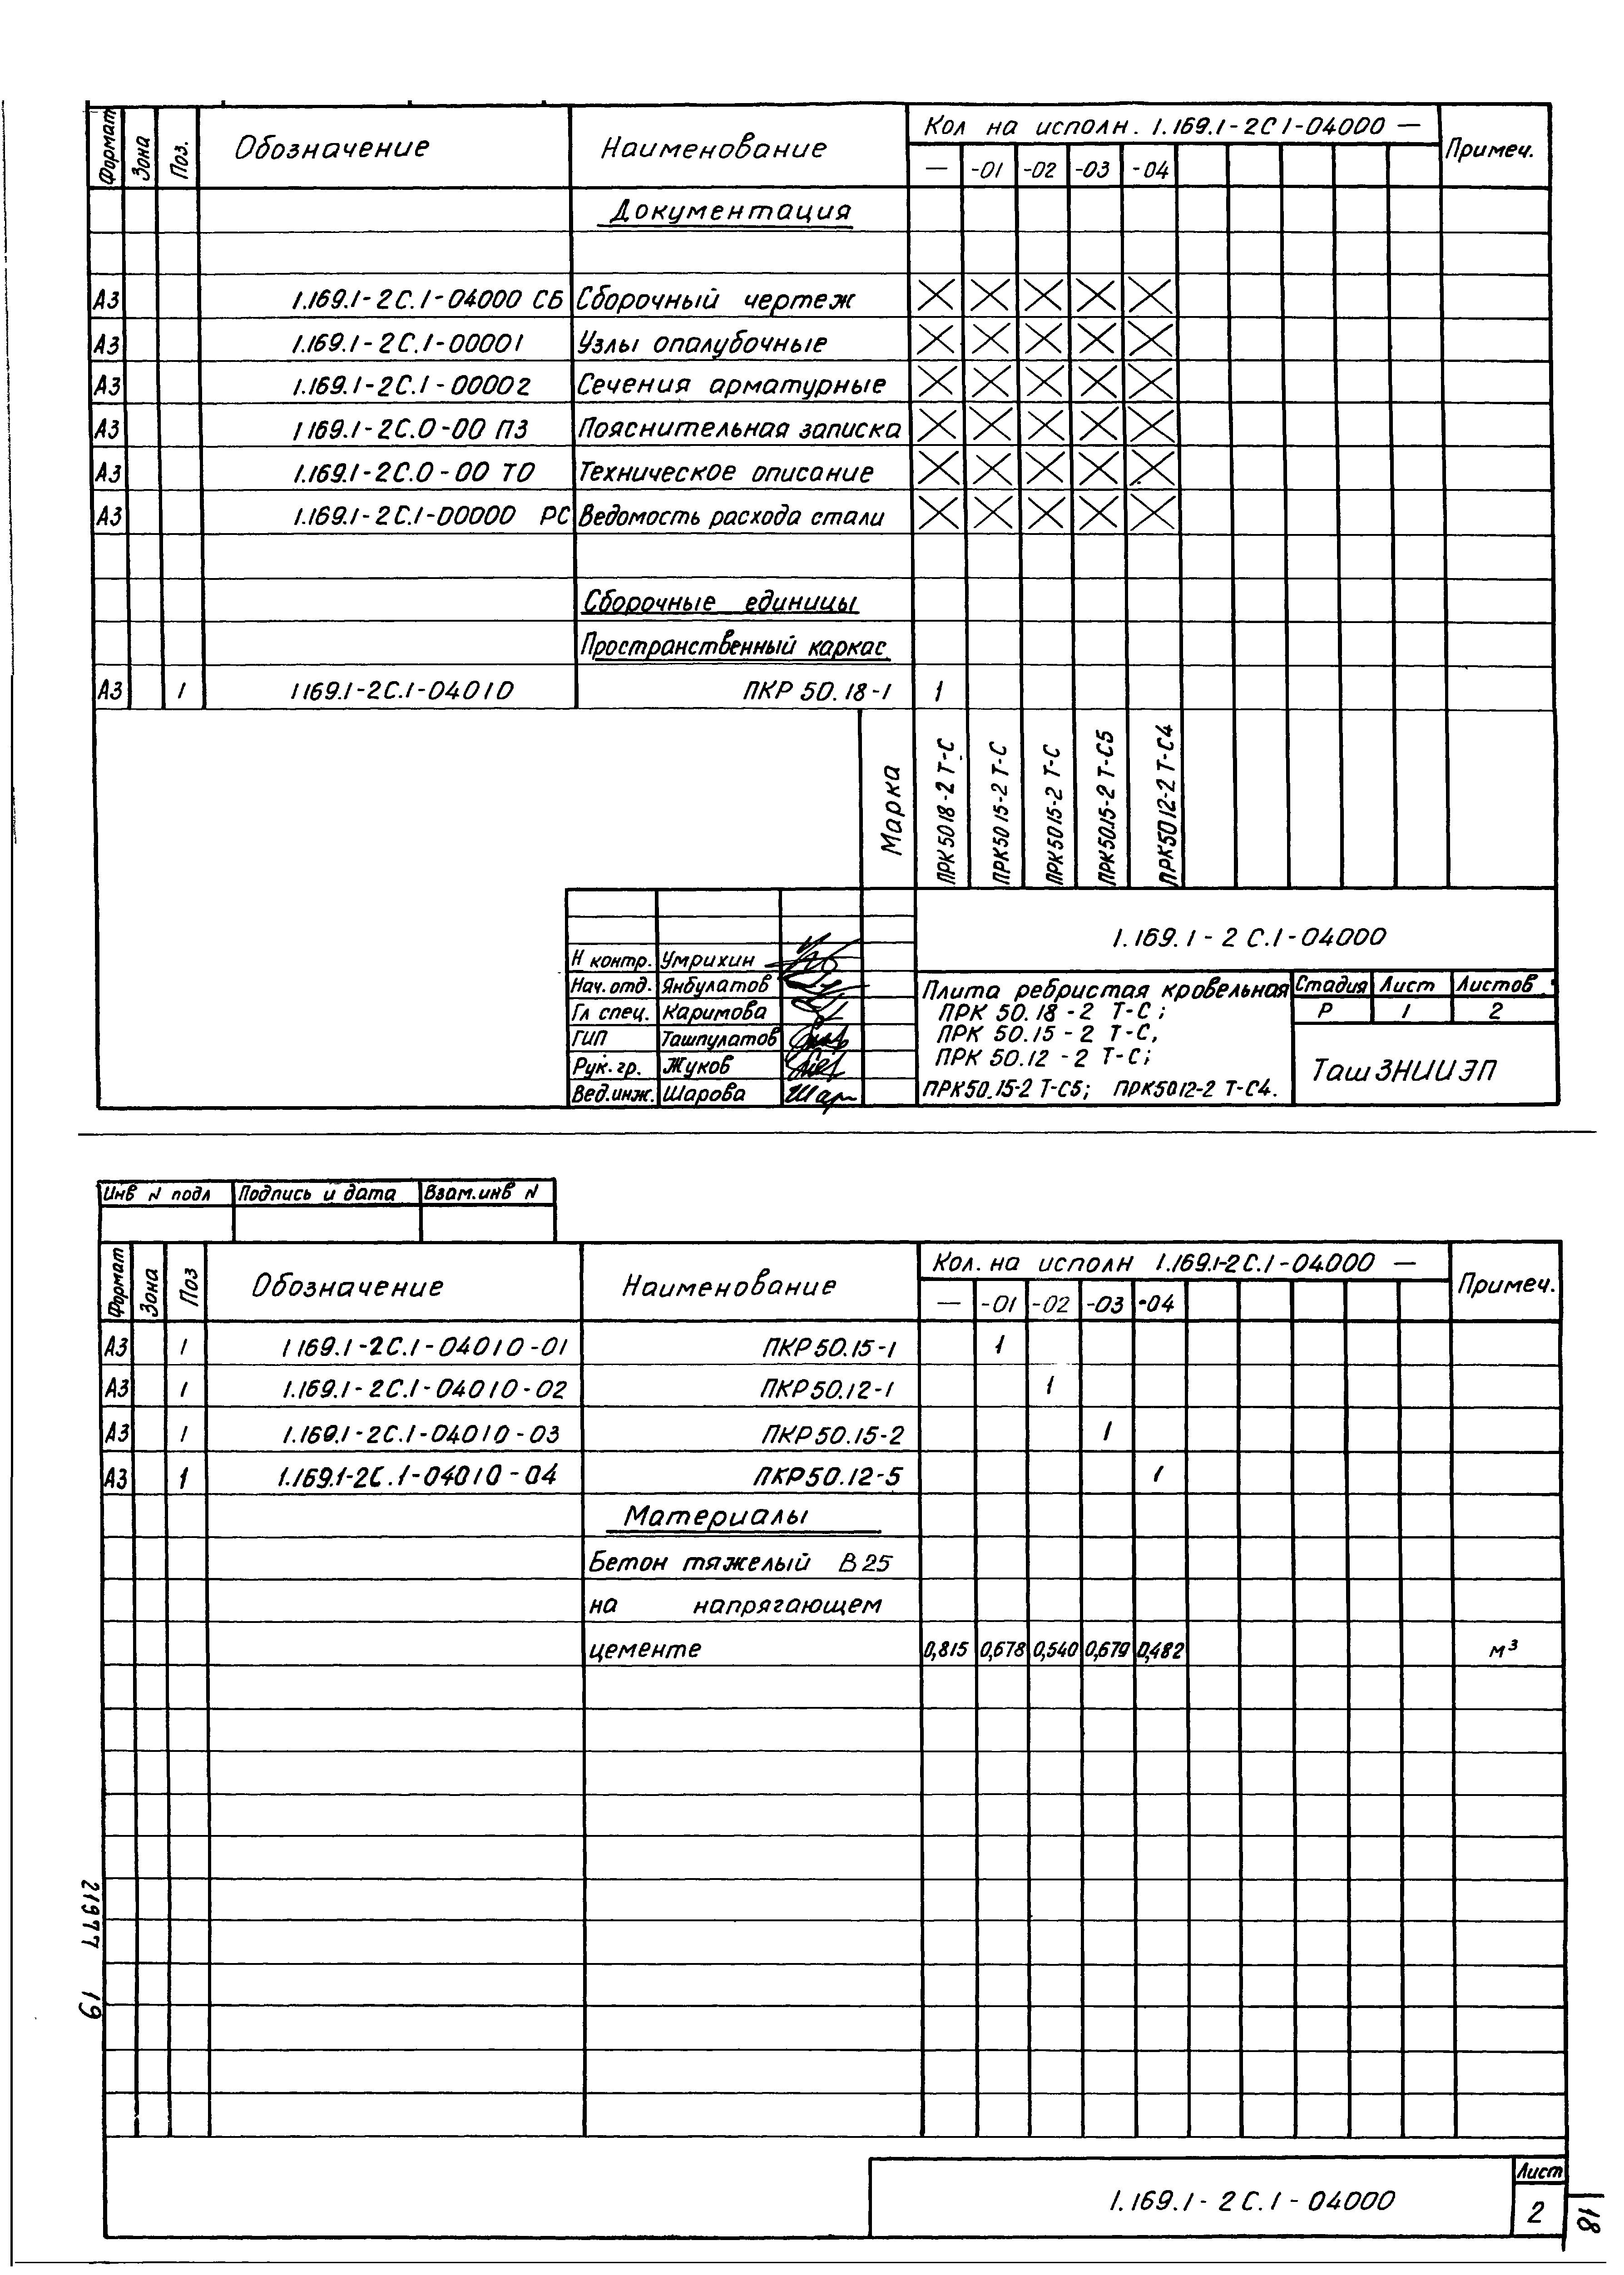 Формат Зона Поз. Обозначение Наименование Кол на исполн. 1.169.1-2С1-04000 — Примеч.
— -01 -02 -03 -04
Документация
А3 1.169.1-2С.1-04000 СБ Сборочный чертеж
А3 1.169.1-2С.1-00001 Узлы опалубочные
А3 1.169.1-2С.1-00002 Сечения арматурные
А3 1169.1-2С.0-00 ПЗ Пояснительная записка
А3 1.169.1-2С.0-00 ТО Техническое описание
А3 1.169.1-2С.1-00000 РС Ведомость расхода стали
Сборочные единицы
Пространственный каркас
А3 1 1169.1-2С.1-04010 ПКР 50.18-1 1
Марка ПРК5018-2 Т-С ПРК5015-2 Т-С ПРК5015-2 Т-С ПРК50.15-2 Т-С5 ПРК5012-2 Т-С4
1.169.1-2С.1-04000
Н контр. Умрихин
Нач. отд. Янбулатов
Гл спец. Каримова
ГИП Ташпулатов
Рук. гр. Жуков
Вед.инж. Шарова Шар
Плита ребристая кровельная
ПРК 50.18-2 Т-С;
ПРК 50.15-2 Т-С,
ПРК 50.12-2 Т-С;
ПРК50.15-2 Т-С5; ПРК5012-2 Т-С4.
Стадия Лист Листов
Р 1 2
ТашЗНИИЭП
Инв N подл Подпись и дата Взам.инв N
Формат Зона Поз Обозначение Наименование Кол. на исполн 1.169.1-2С.1-04000 — Примеч.
— -01 -02 -03 -04
А3 1 1169.1-2С.1-04010-01 ПКР50.15-1 1
А3 1 1.169.1-2С.1-04010-02 ПКР50.12-1 1
А3 1 1.169.1-2С.1-04010-03 ПКР50.15-2 1
А3 1 1.169.1-2С.1-04010-04 ПКР50.12-5 1
Материалы
Бетон тяжелый В25
на напрягающем
цементе 0,815 0,678 0,540 0,679 0,482 м³
21977 19
1.169.1-2С.1-04000
Лист
2
18